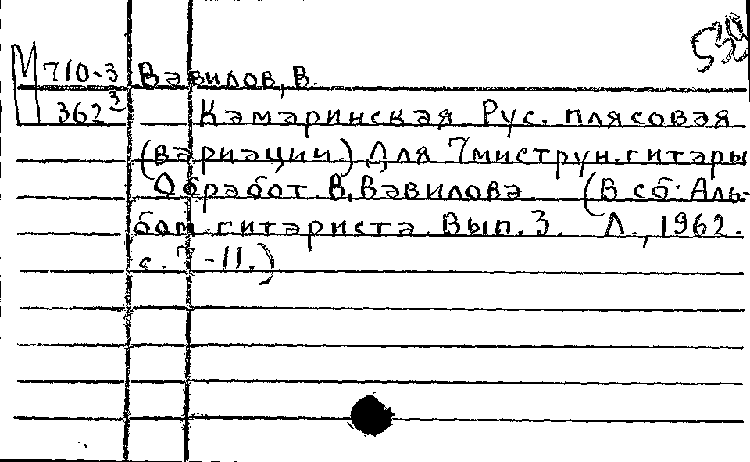 539
М 710-3 Вавилов, В.
362³ Камаринская Рус. плясовая
(вариации) Для 7миструн.гитары
Обработ. В. Вавилова (В сб: Аль-
бом гитариста. Вып. 3. Л., 1962.
с. 7-11.)